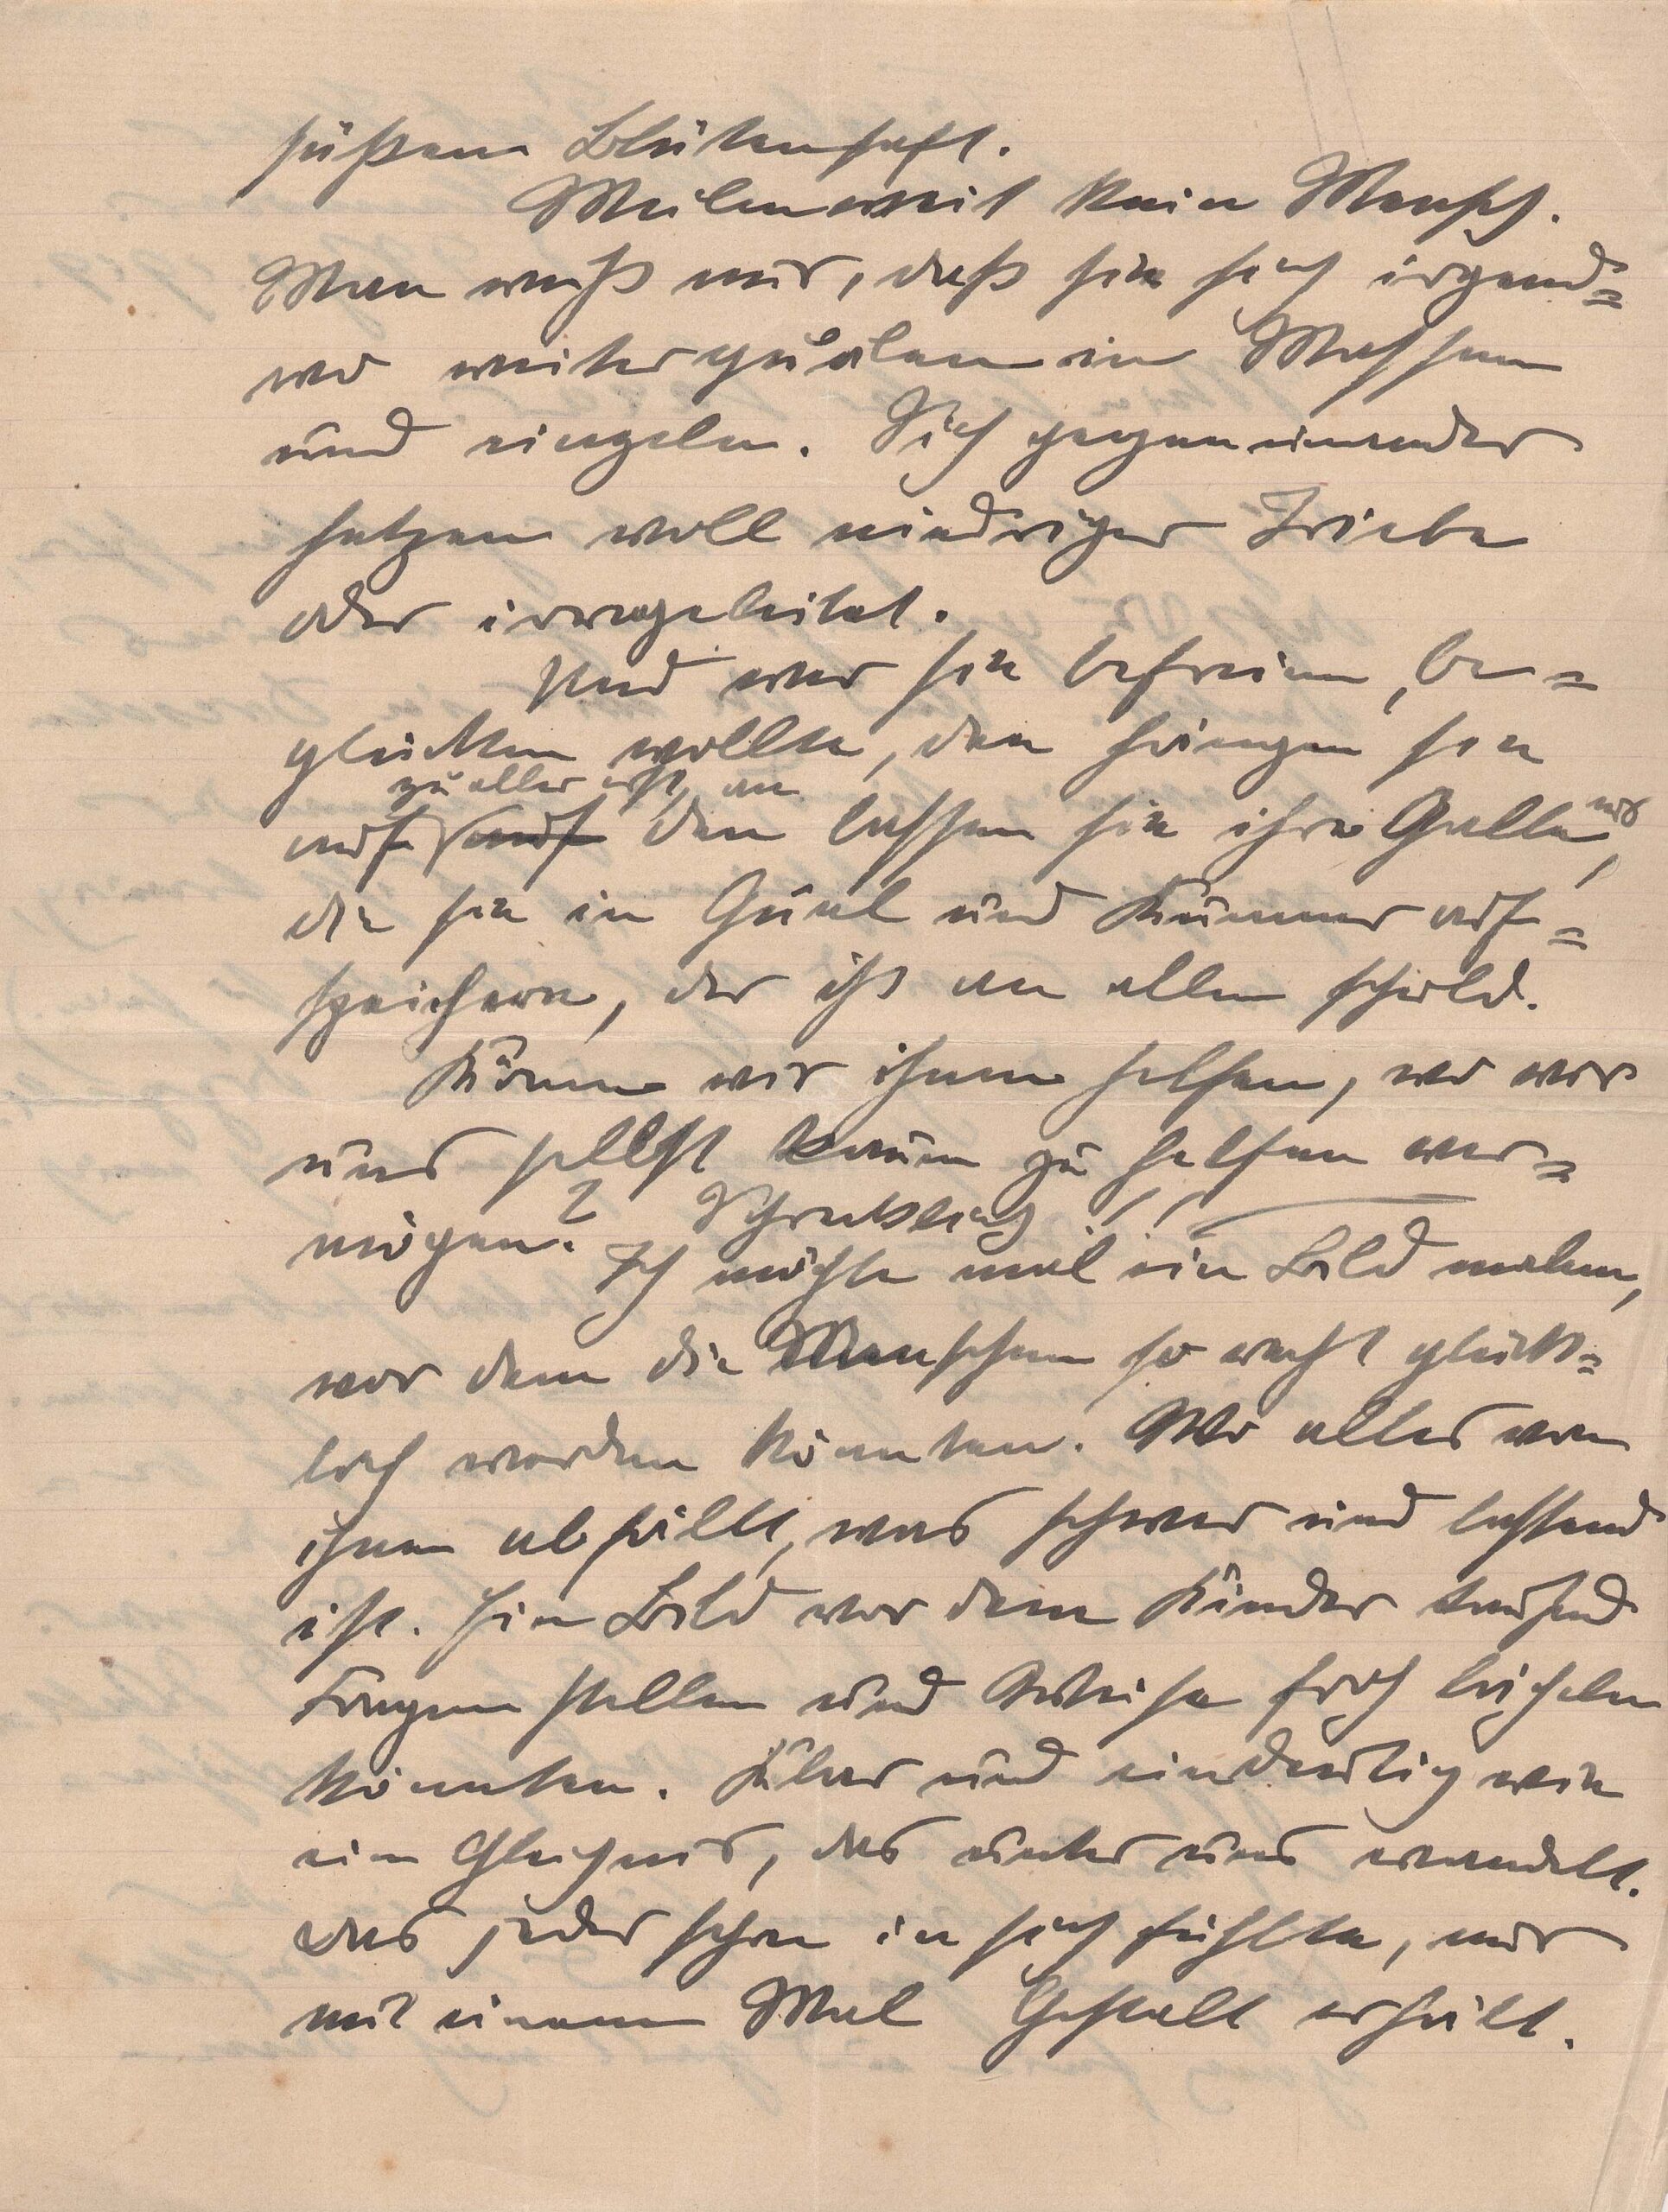 süßem Blütensaft.
Meilenweit kein Mensch.
Man weiß nur, daß sie sich irgend=
wo weiterquälen in Massen
und einzeln. Sich gegeneinander
hetzen voll niedriger Triebe
oder irregeleitet.
Und wer sie befreien, be=
glücken wollte, den hängen sie
zu aller erst, an
auf, auf den lassen sie ihre Galle aus,
die sie in Qual und Kummer auf=
speichern, der ist an allem schuld.
Können wir ihnen helfen, wo wir
uns selbst kaum zu helfen ver=
mögen? Schrecklich!!
Ich möchte mal ein Bild malen,
vor dem die Menschen so recht glück=
lich werden könnten. Wo alles von
ihnen abfällt, was schwer und lastend
ist. Ein Bild vor dem Kinder tausend
Fragen stellen und Weise froh lächeln
könnten. Klar und eindeutig wie
ein Gleichnis, das unter uns wandelt.
Das jeder schon in sich fühlte, nur
mit einem Mal Gestalt erhält.